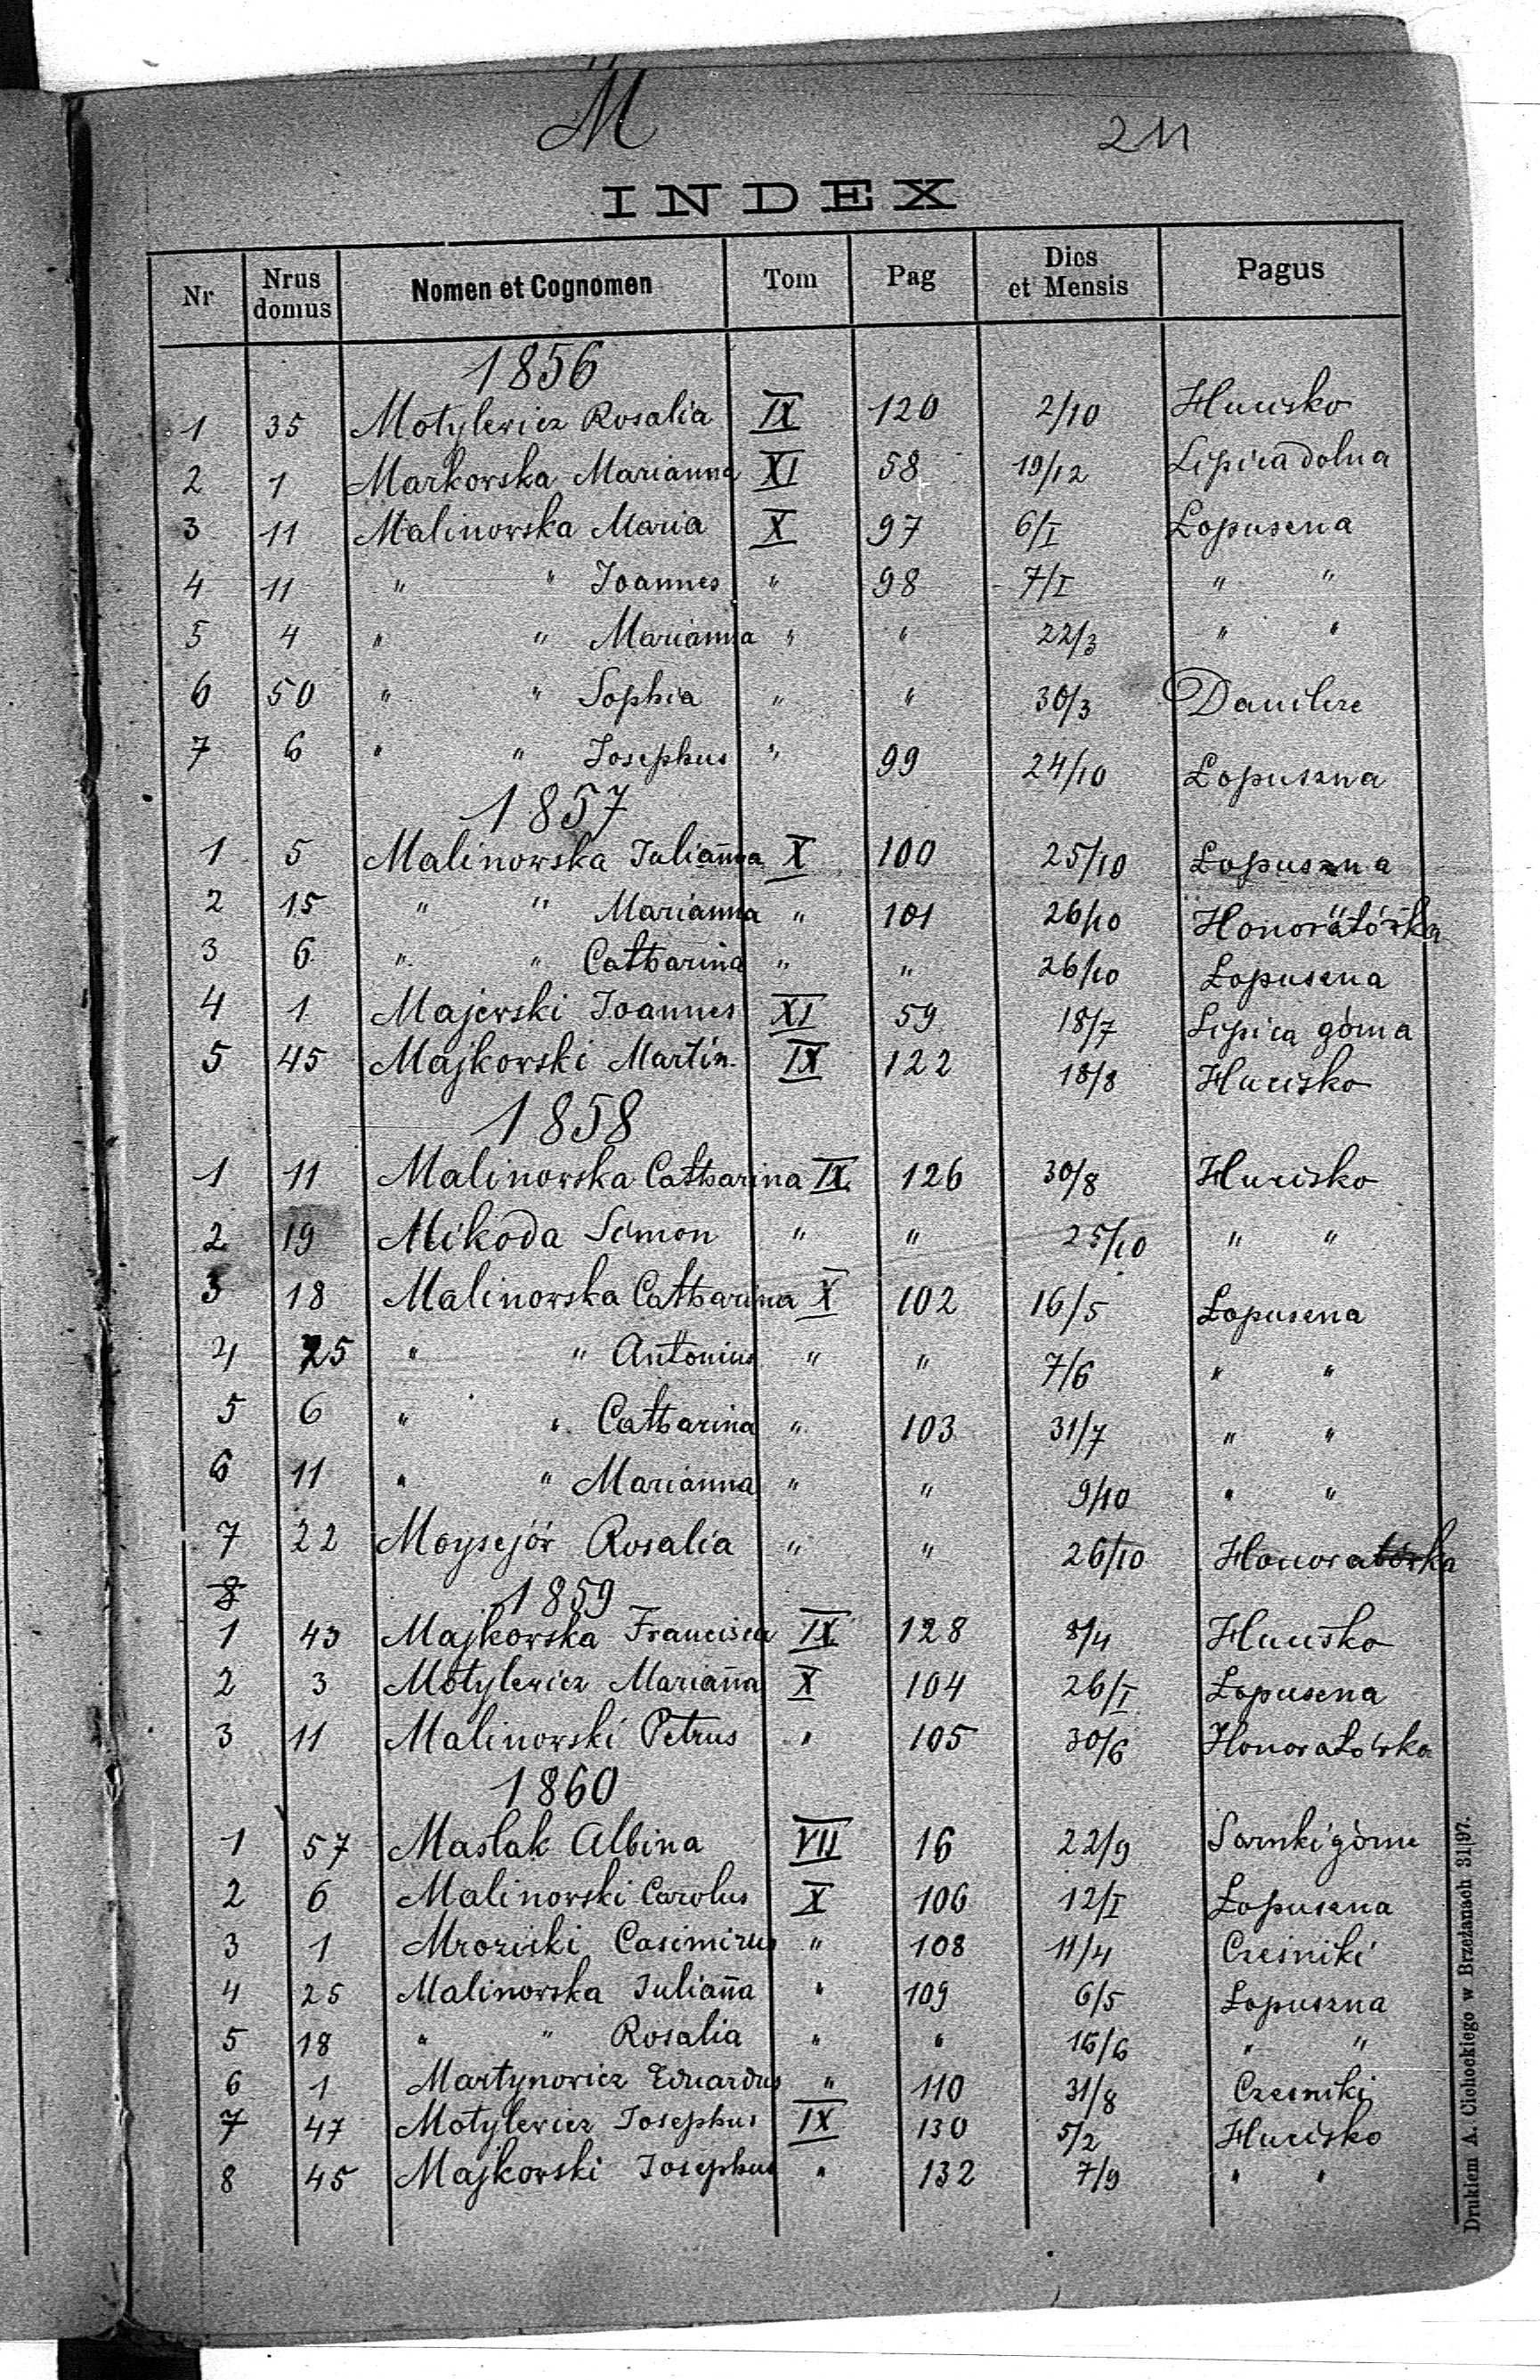 M
211
INDEX
Nr Nrus domus Nomen et Cognomen Tom Pag Dies et Mensis Pagus
1856
1 35 Motylewicz Rosalia IX 120 2/10 Hucisko
2 1 Markowska Marianna XI 58 19/12 Lipica dolna
3 11 Malinowska Maria X 97 6/I Lopuszna
4 11 " " Joannes " 98 7/I " "
5 4 " " Marianna " " 22/3 " "
6 50 " " Sophia " " 30/3 Danilcze
7 6 " " Josephus " 99 24/10 Lopuszna
1857
1 5 Malinowska Julianna X 100 25/10 Lopuszna
2 15 " " Marianna " 101 26/10 Honoratówka
3 6 " " Catharina " " 26/10 Lopuszna
4 1 Majewski Joannes XI 59 18/7 Lipica górna
5 45 Majkowski Martin. IX 122 18/8 Hucisko
1858
1 11 Malinowska Catharina IX 126 30/8 Hucisko
2 19 Mikoda Simon " " 25/10 " "
3 18 Malinowska Catharina X 102 16/5 Lopuszna
4 25 " " Antonius " " 7/6 " "
5 6 " " Catharina " 103 31/7 " "
6 11 " " Marianna " " 9/10 " "
7 22 Moysejów Rosalia " " 26/10 Honoratówka
8 1859
1 43 Majkowska Francisca IX 128 8/4 Hucisko
2 3 Motylewicz Mariana̅ X 104 26/I Lopuszna
3 11 Malinowski Petrus " 105 30/6 Honoratówka
1860
1 57 Maslak Albina VII 16 22/9 Sarnki górne
2 6 Malinowski Carolus X 106 12/I Łopuszna
3 1 Mrozicki Casimirus " 108 11/4 Cześniki
4 25 Malinowska Juliana̅ " 109 6/5 Lopuszna
5 18 " " Rosalia " " 16/6 " "
6 1 Martynowicz Eduardus " 110 31/8 Czesniki
7 47 Motylewicz Josephus IX 130 5/2 Hucisko
8 45 Majkowski Josephus " 132 7/9 " "
Drukiem A. Cichockiego w Brzeżanach 31|97.